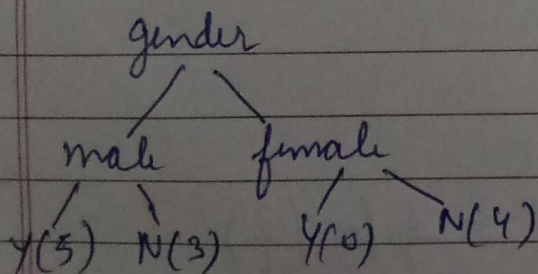 gender
male female
Y(5) N(3) Y(0) N(4)